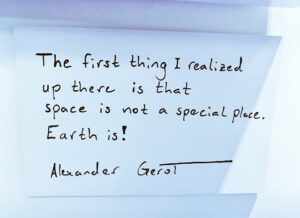 The first thing I realized
up there is that
space is not a special place.
Earth is!
Alexander Gerst